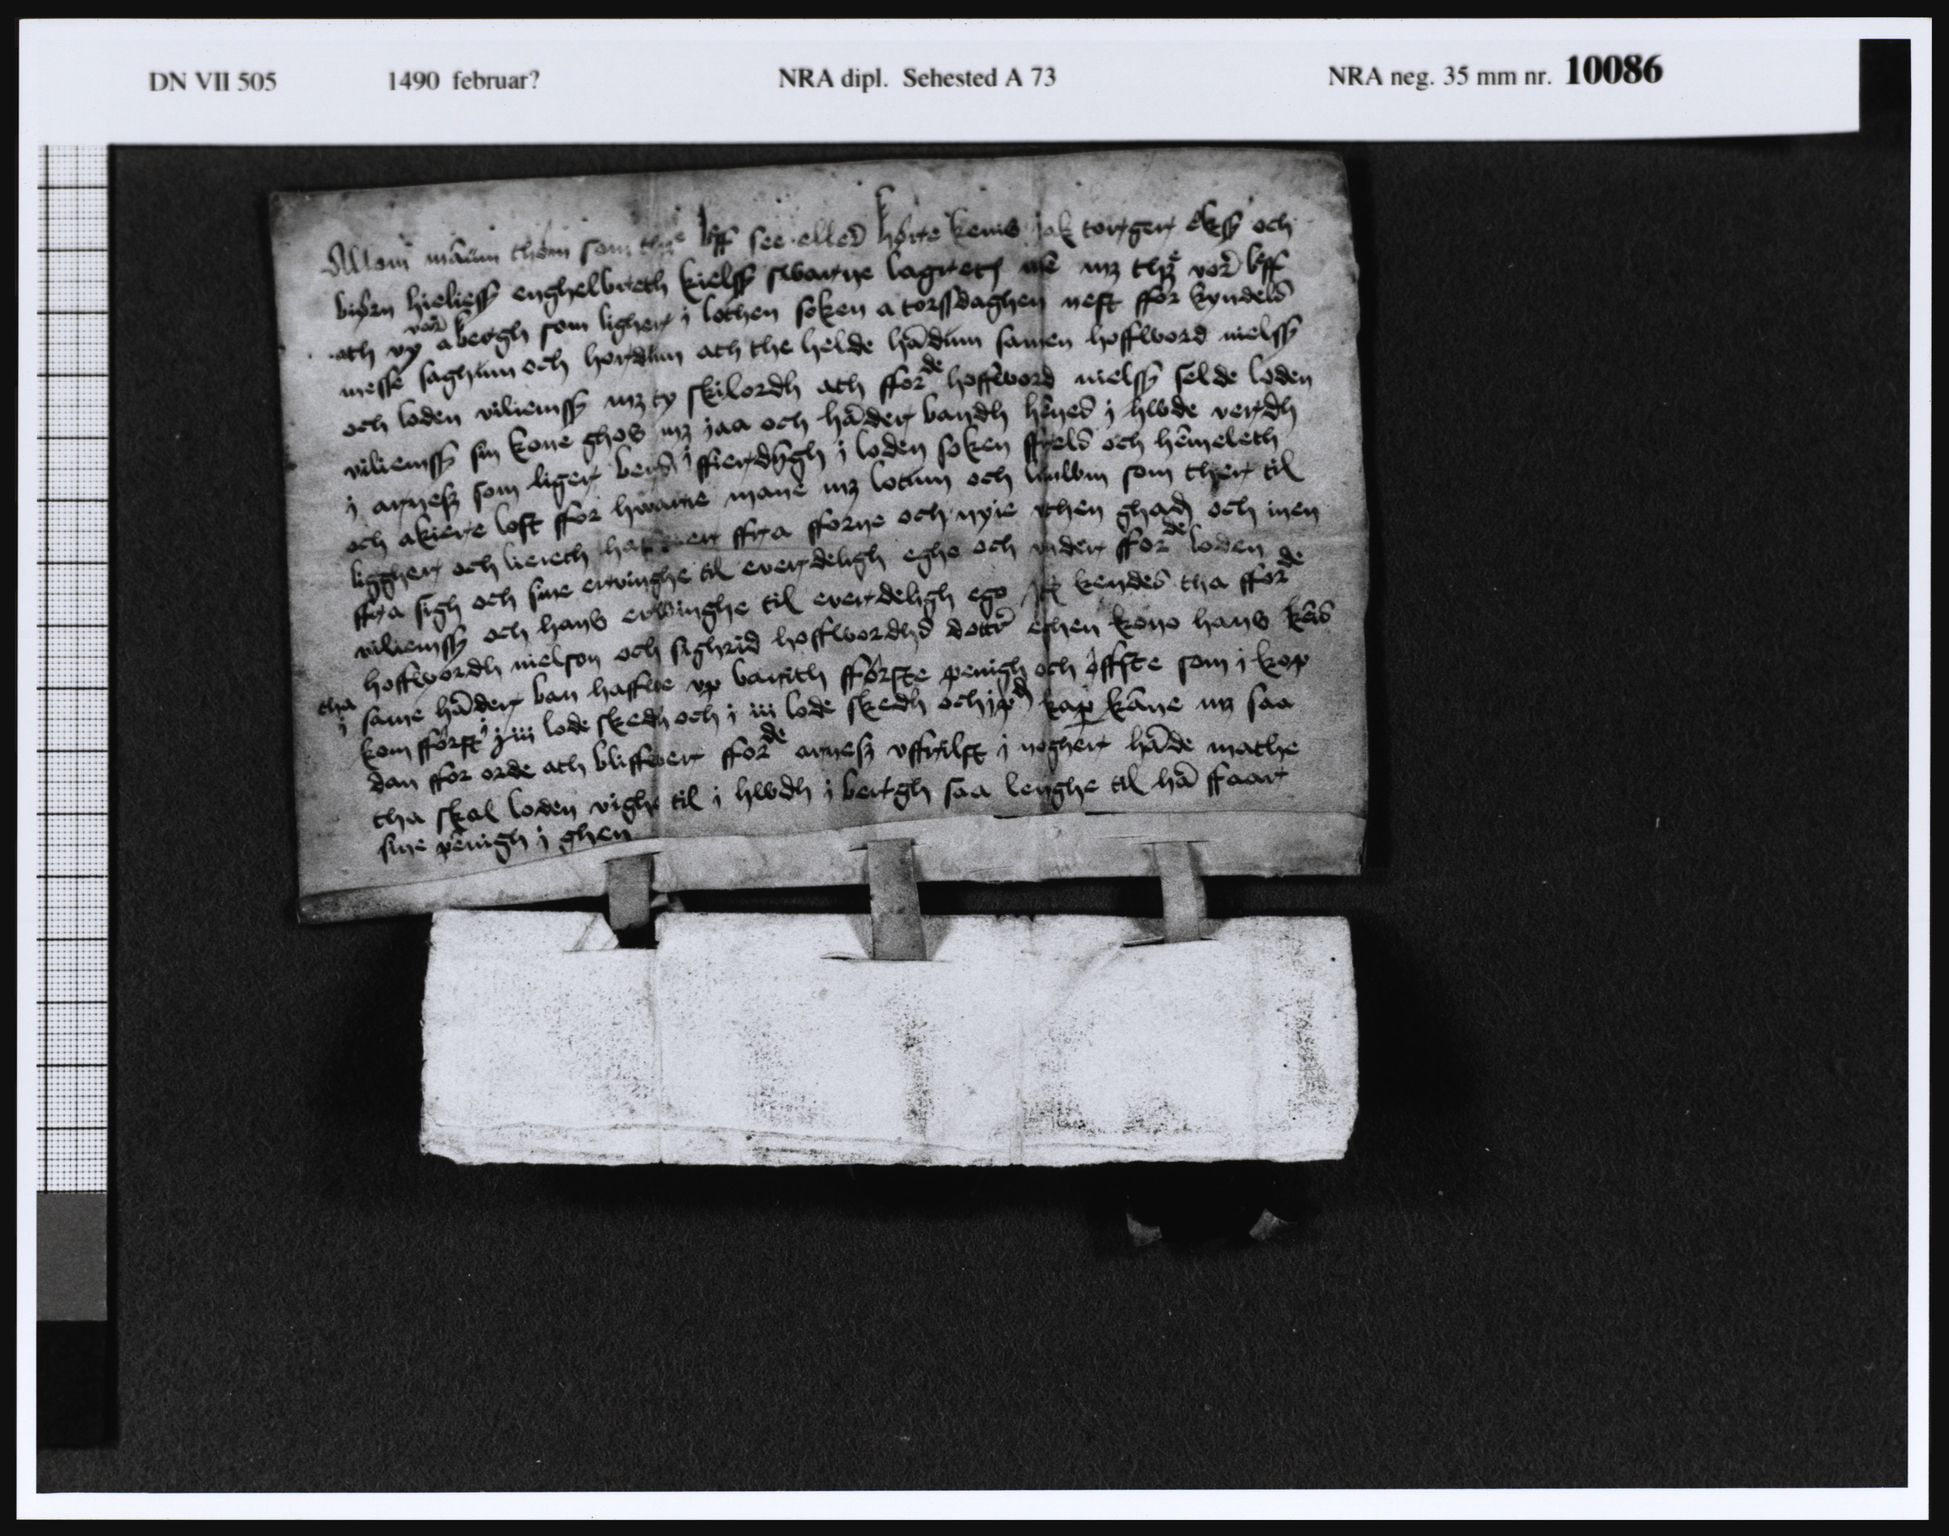 DN VII 505 1490 februar? NRA dipl. Sehested A 73 NRA neg. 35 mm nr. 10086
Allom mannum thøm som thꝫᵉ bff see elleꝭ høre kenis jak torger ekꝭꝭ och
biørn hielieꝭꝭ enghelbreth kielꝭꝭ swarne lagretꝭ mē mꝫ thꝫᵉ vor̄ bff
ath vy vor̄ a bergh som ligher i lothen soken a torssdaghen nest ffor kyndelꝭ
messe saghum och hordum ath the helde hādum samen hoffword nielꝭꝭ
och loden viliemꝭꝭ mꝫ ty skilordh ath fforᵈᵉ hoffword nielꝭꝭ selde loden
viliemꝭꝭ sin kone ghos mꝫ jaa och hāder bandh hēneꝭ i hwde verdh
i arnesꝫ som liger i ffierdīgh i loden soken ffrelꝭ och hēmeleth
och akiere løst ffor hwarie mane mꝫ lotum och lunwm som ther til
liggher och liereth ffra fforne och nyie vthen ghadꝫ och inen
ffra sigh och sine ervinghe til everdeligh egho och vnder fforᵈᵉ loden
viliemꝭꝭ och hans erwinghe til everdeligh ego Jtꝫ kendeꝭ tha fforᵈᵉ
hoffwordh nielson och sighrid hoffwordhꝭ dotter̄ ethen kono hans kēꝭ
tha i same hāder ban haffwe vp barith fførste penīgh och øffste som i køp
kom fførst i iiii lode skedh och i iii lode skedh och jpᵈ kāne mꝫ saa
dan ffor orde ath bliffwer fforᵈᵉ arnesꝫ vffrilst i nogher hāde mathe
tha skal loden vighe til i hwdh i bergh saa lenghe til hā ffaar
sine pēnigh i ghen